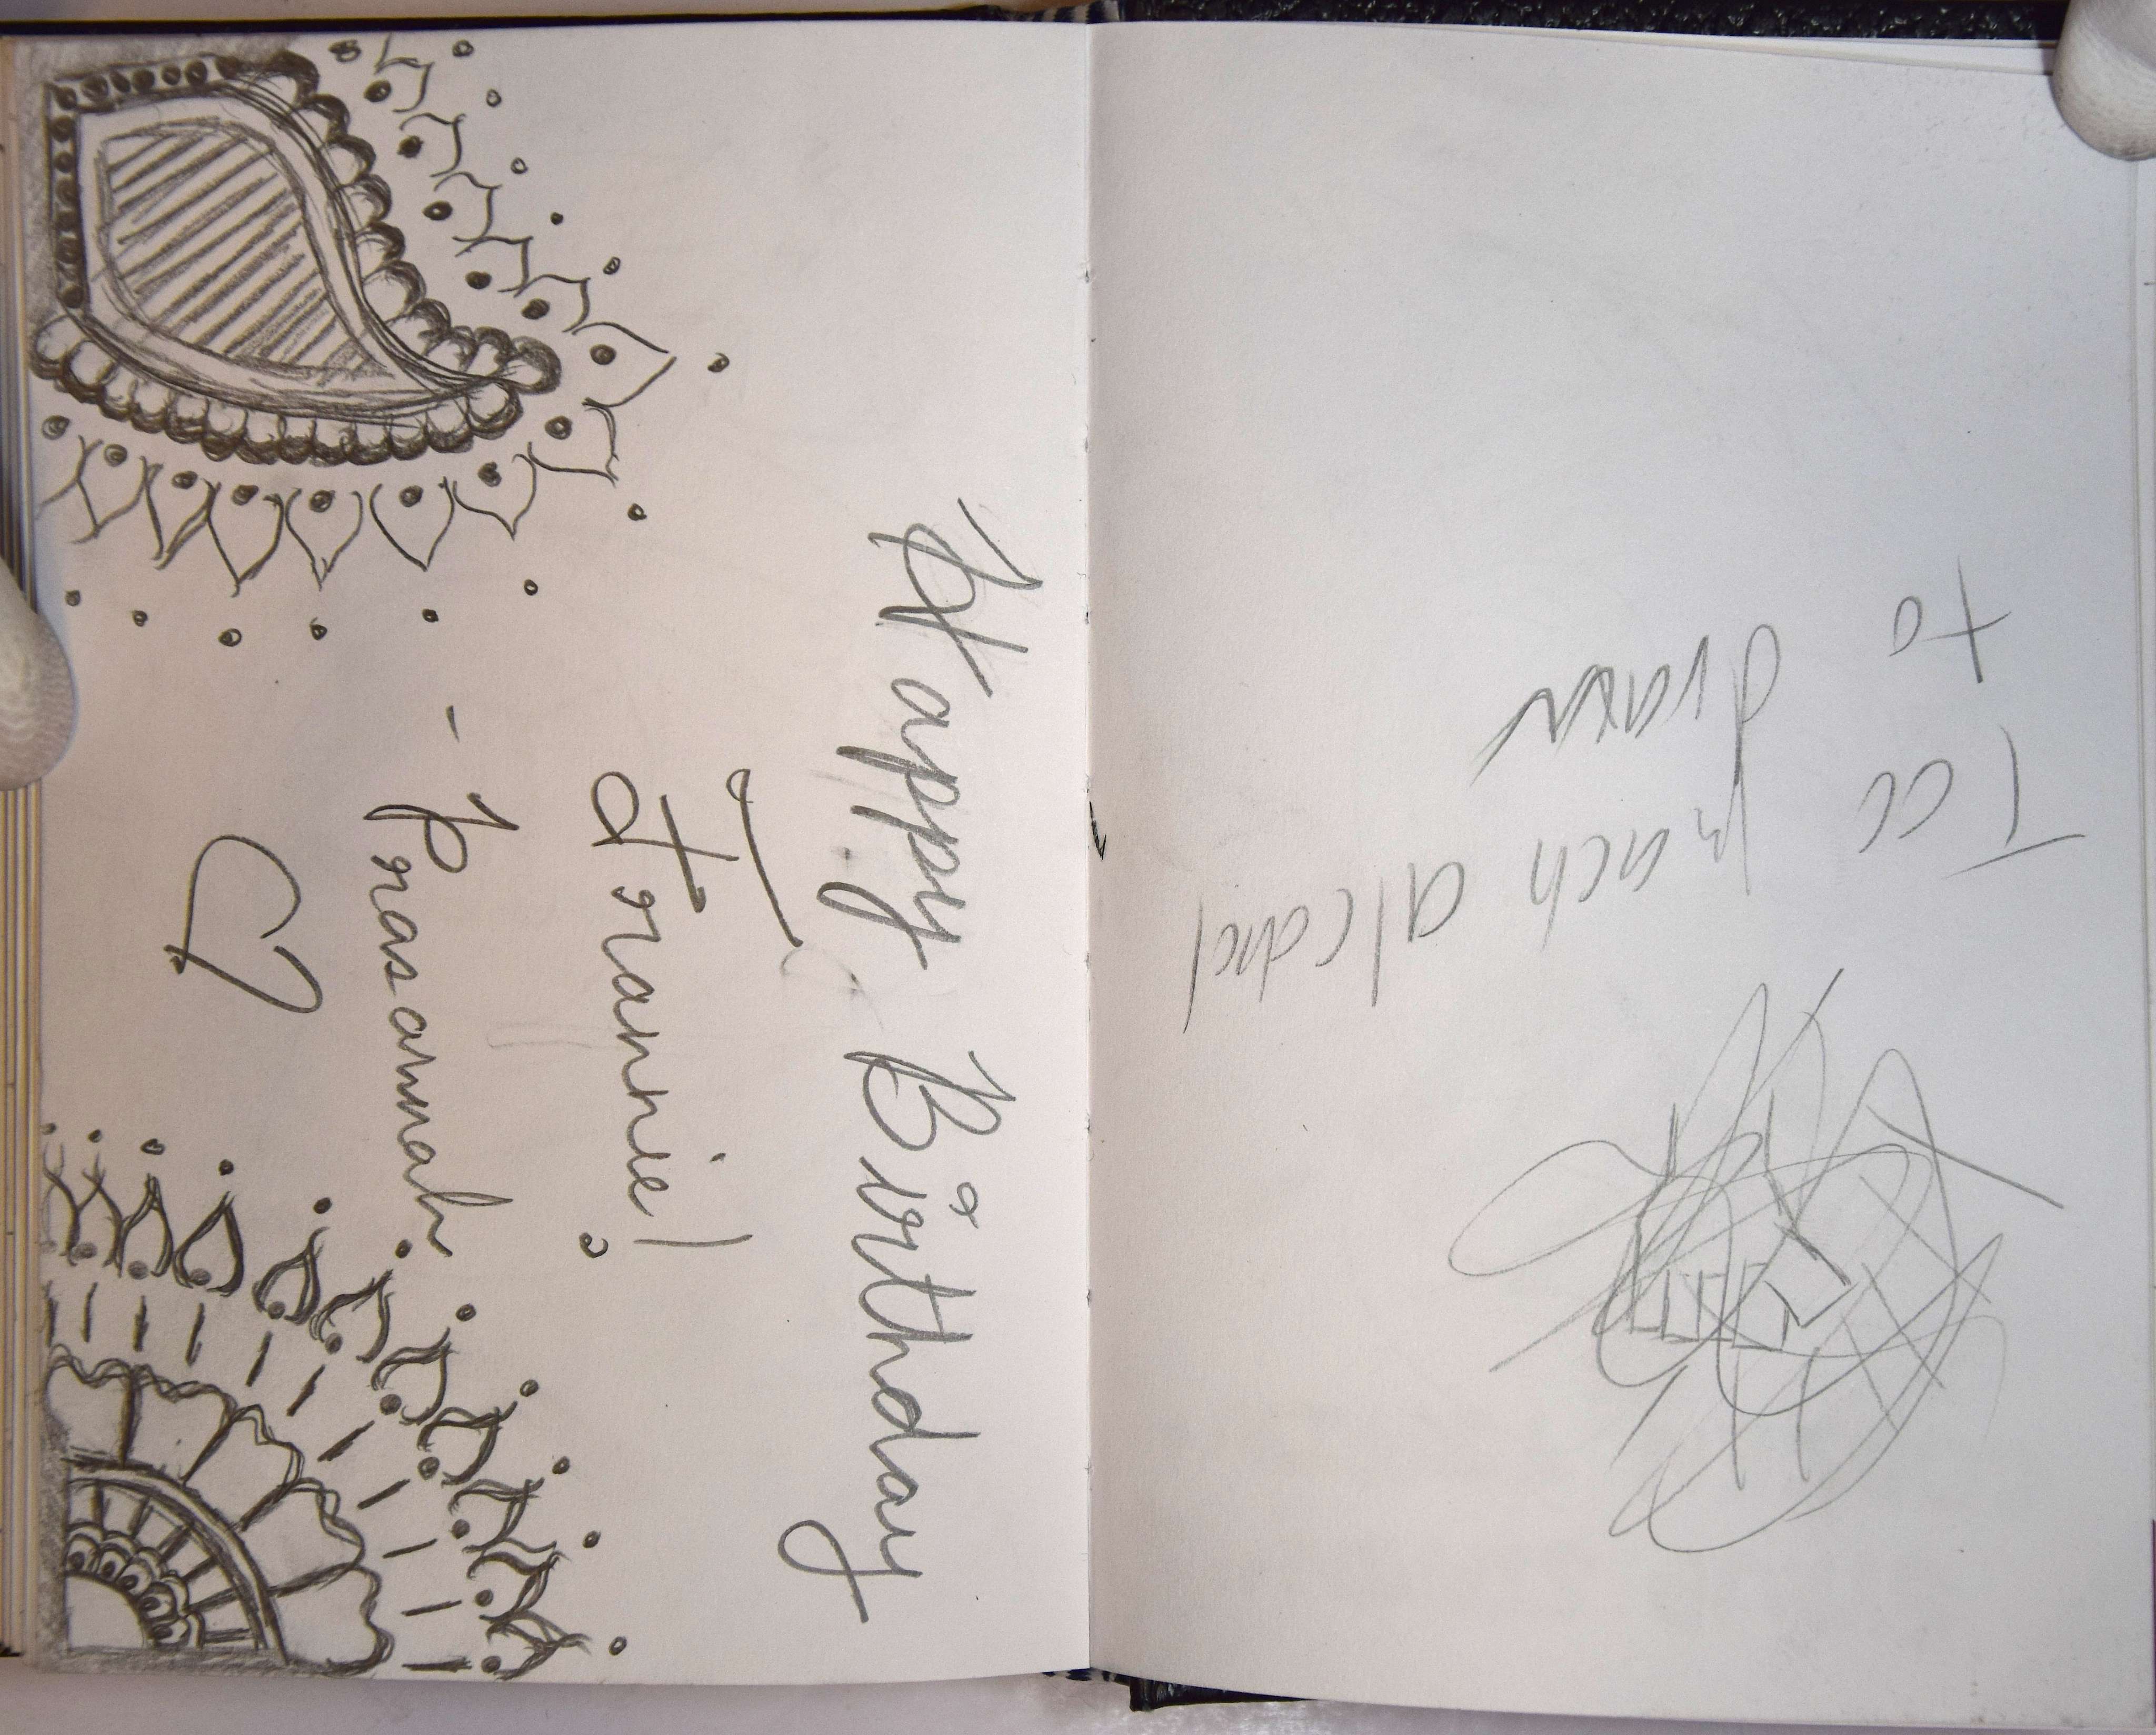 Happy Birthday
Frannie!
- Prasannah
Too much alcohol
to draw